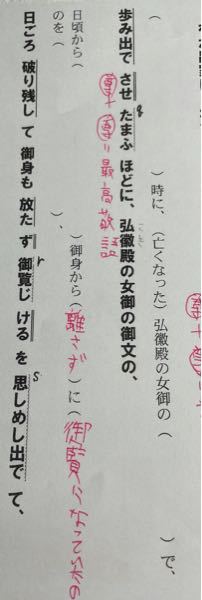 (　　)時に、(亡くなった)弘徽殿の女御の(　　)で、
歩み出で させ たまふ ほどに、弘徽殿の女御の御文の、
q
尊+尊=最高敬語
日頃から(　　)御身から(離さず)に(御覧になっていたの
のを(　　)、
r
s
日ごろ 破り残し て 御身も 放た ず 御覧じ ける を 思しめし出で て、